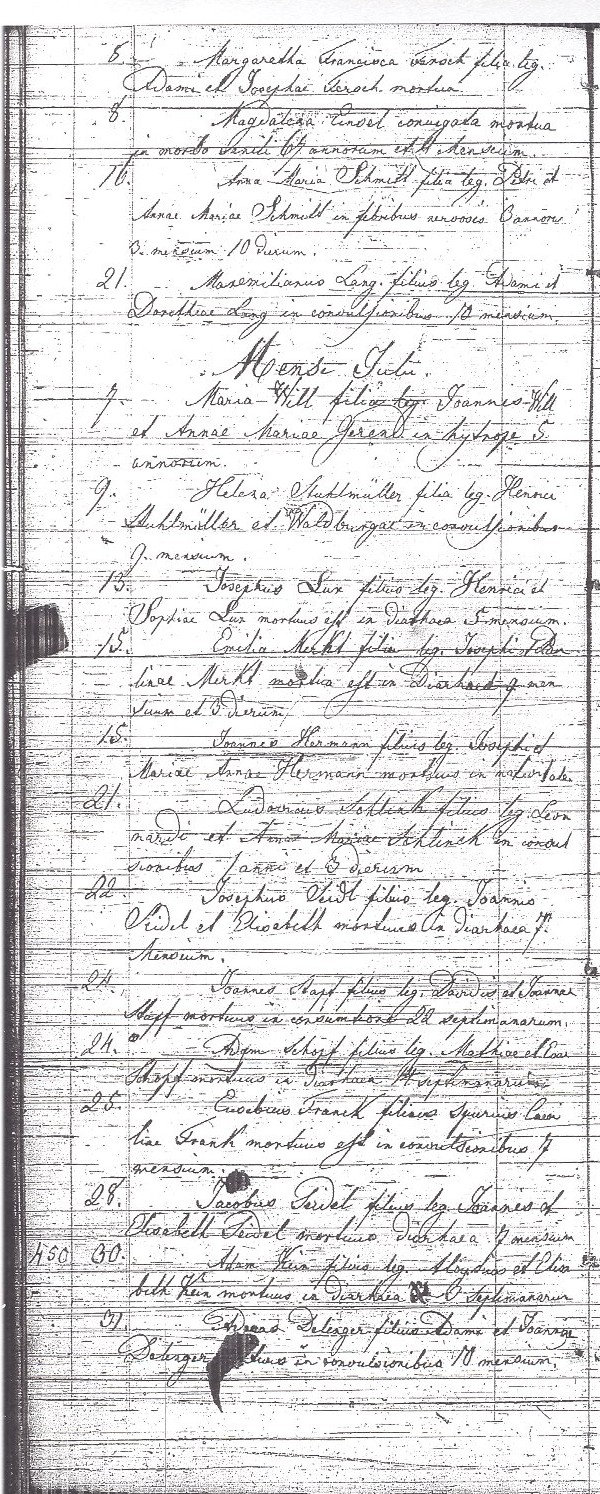 6. Margaretha Francisca Fersch filia leg.
Adami et Josephae Fersch mortua
8. Magdalena Einsel conjugata mortua
in morbo senili 64 annorum et Mensium.
16. Anna Maria Schmitt filia leg. Petri et
Annae Mariae Schmitt in febribus nervosis 3 annors
3. mensium 10 dierum.
21. Maxemilianus Lang. filius leg Adami et
Dorotheae Lang in convulsionibus 10 mensium.
Mense Julii.
7. Maria Will filia leg. Joannes Will
et Annae Mariae in hytrope 5
annorum.
9. Helena Stuhlmüller filia leg. Henrici
Stuhlmüller et Waldburgae in convulsionibus
9. mensium.
13. Josephus Lux filius leg. Henrici et
Sophiae Lux mortuus est in diarhaea 5 mensium.
15. Emilia Merkt filia leg. Josephi et Pau
linae Merkt mortua est in Diarhaea 9 men
sium et 3 dierum
15. Joannes Hermann filius leg. Josephi et
Mariae Annae Hermann mortuus in nativitate.
21. Ludovicus Schlink filius leg. Leon
nardi et Annae Mariae Schlinck in convul
sionibus 1 anni et 3 dierum
22. Josephus Seidl filius leg. Joannis
Seidel et Elisabeth mortuus in diarhaea 7.
Mensium.
24. Joannes Stapf filius leg. Davidis et Joannae
Stapf mortuus in consumtione 22 septimanarum.
24. Adam Schopf filius leg. Mathiae et Eva
Schopf mortuus in diarhaea 14 septimanarum
25. Eusebius Franck filius spurius Caeci
liae Frank mortuus est in convulsionibus 7
mensium.
28. Jacobus Seidel filius leg. Joannes et
Elisabeth Seidel mortuus diarhaea 7 mensium
450 30. Adam Kein filius leg. Aloysius et Elisa
beth Kein mortuus in diarhaea 3 septimanarum
31. Andreas Detenger filius Adami et Joannae
Detenger in convulsionibus 10 mensium.